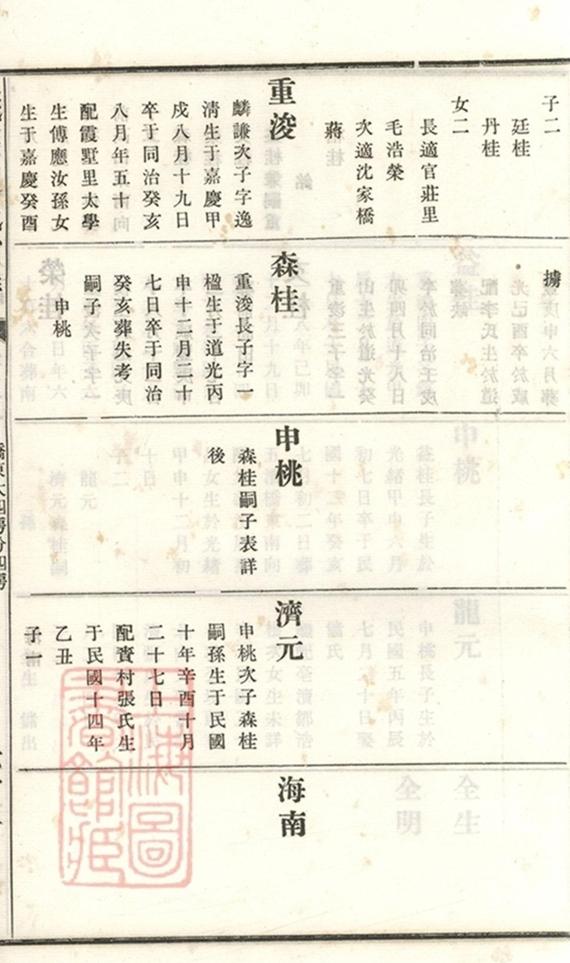 子二
廷桂
丹桂
女二
長適官莊里
毛浩榮
次適沈家橋
蔣
重浚
麟謙次子字逸
淸生于嘉慶甲
戌八月十九日
卒于同治癸亥
八月年五十
配霞墅里太學
生傅應汝孫女
生于嘉慶癸酉
擄
森桂
重浚長子字一
楹生于道光丙
申十二月二十
七日卒于同治
癸亥葬失考
嗣子一
申桃
申桃
森桂嗣子表詳
後
濟元
申桃次子森桂
嗣孫生于民國
十年辛酉十月
二十七日
配賚村張氏生
于民國十四年
乙丑
子一
海南